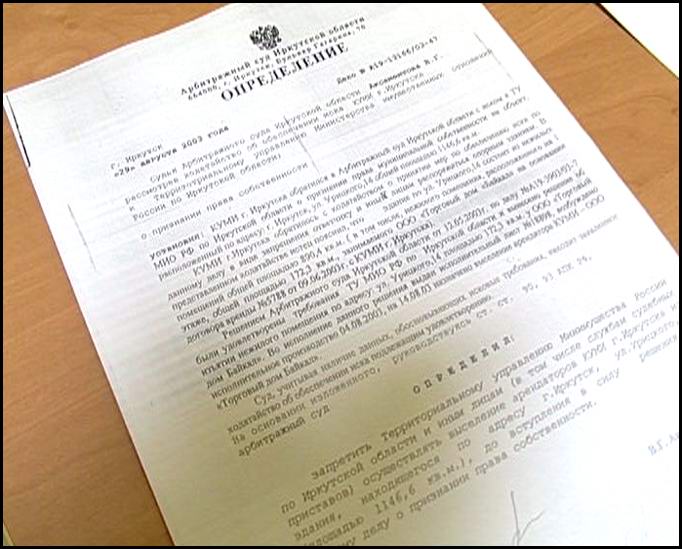 Арбитражный суд Иркутской области
664000, г. Иркутск, Бульвар Гагарина, 70
ОПРЕДЕЛЕНИЕ
г. Иркутск
Дело № А19-13166/03-47
«29» августа 2003 года
Судья Арбитражного суда Иркутской области Аксаментова В.Г.
рассмотрев ходатайство об обеспечении иска КУМИ г.Иркутска
к Территориальному управлению Министерства имущественных отношений
России по Иркутской области
о признании права собственности
установил: КУМИ г. Иркутска обратился в Арбитражный суд Иркутской области с иском к ТУ
МИО РФ по Иркутской области о признании права муниципальной собственности на объект,
расположенный по адресу г. Иркутск, ул. Урицкого,14 общей площадью 1146,6 кв.м.
КУМИ г.Иркутска обратились с ходатайством о принятии мер по обеспечению иска по
данному делу в виде запрещения ответчику и иным лицам распоряжаться спорным зданием. В
представленном ходатайстве истец пояснил, что здание по ул. Урицкого,14 состоит из нежилых
помещений общей площадью 890,4 кв.м. ( в том числе, нежилого помещения, расположенного на 1
этаже, общей площадью 172,3 кв.м., занимаемого ООО «Торговый дом «Байкал» на основании
договора аренды №5788 от 09.06.2003г. с КУМИ г. Иркутска).
Решением Арбитражного суда Иркутской области от 12.05.2003г. по делу №А19-3903/03-7
были удовлетворены требования ТУ МИО РФ по Иркутской области и вынесено решение об
изъятии нежилого помещения по адресу ул. Урицкого,14 площадью 172,3 кв.м. у ООО «Торговый
дом Байкал». Во исполнение данного решения выдан исполнительный лист №18898, возбуждено
исполнительное производство 04.08.2003, на 14.08.03 назначено выселение арендатора КУМИ – ООО
«Торговый дом Байкал».
Суд, учитывая наличие данных, обосновывающих исковые требования, находит заявленное
ходатайство об обеспечении иска подлежащим удовлетворению.
на основании изложенного, руководствуясь ст. ст. 90, 93 АПК РФ,
арбитражный суд
ОПРЕДЕЛИЛ:
запретить Территориальному управлению Минимущества России
по Иркутской области и иным лицам (в том числе службам судебных
приставов) осуществлять выселение арендаторов КУМИ г.Иркутска из
здания, находящегося по адресу г.Иркутск, ул.Урицкого,
площадью 1146,6 кв.м.), до вступления в силу решения
делу о признании права собственности.
В.Г.